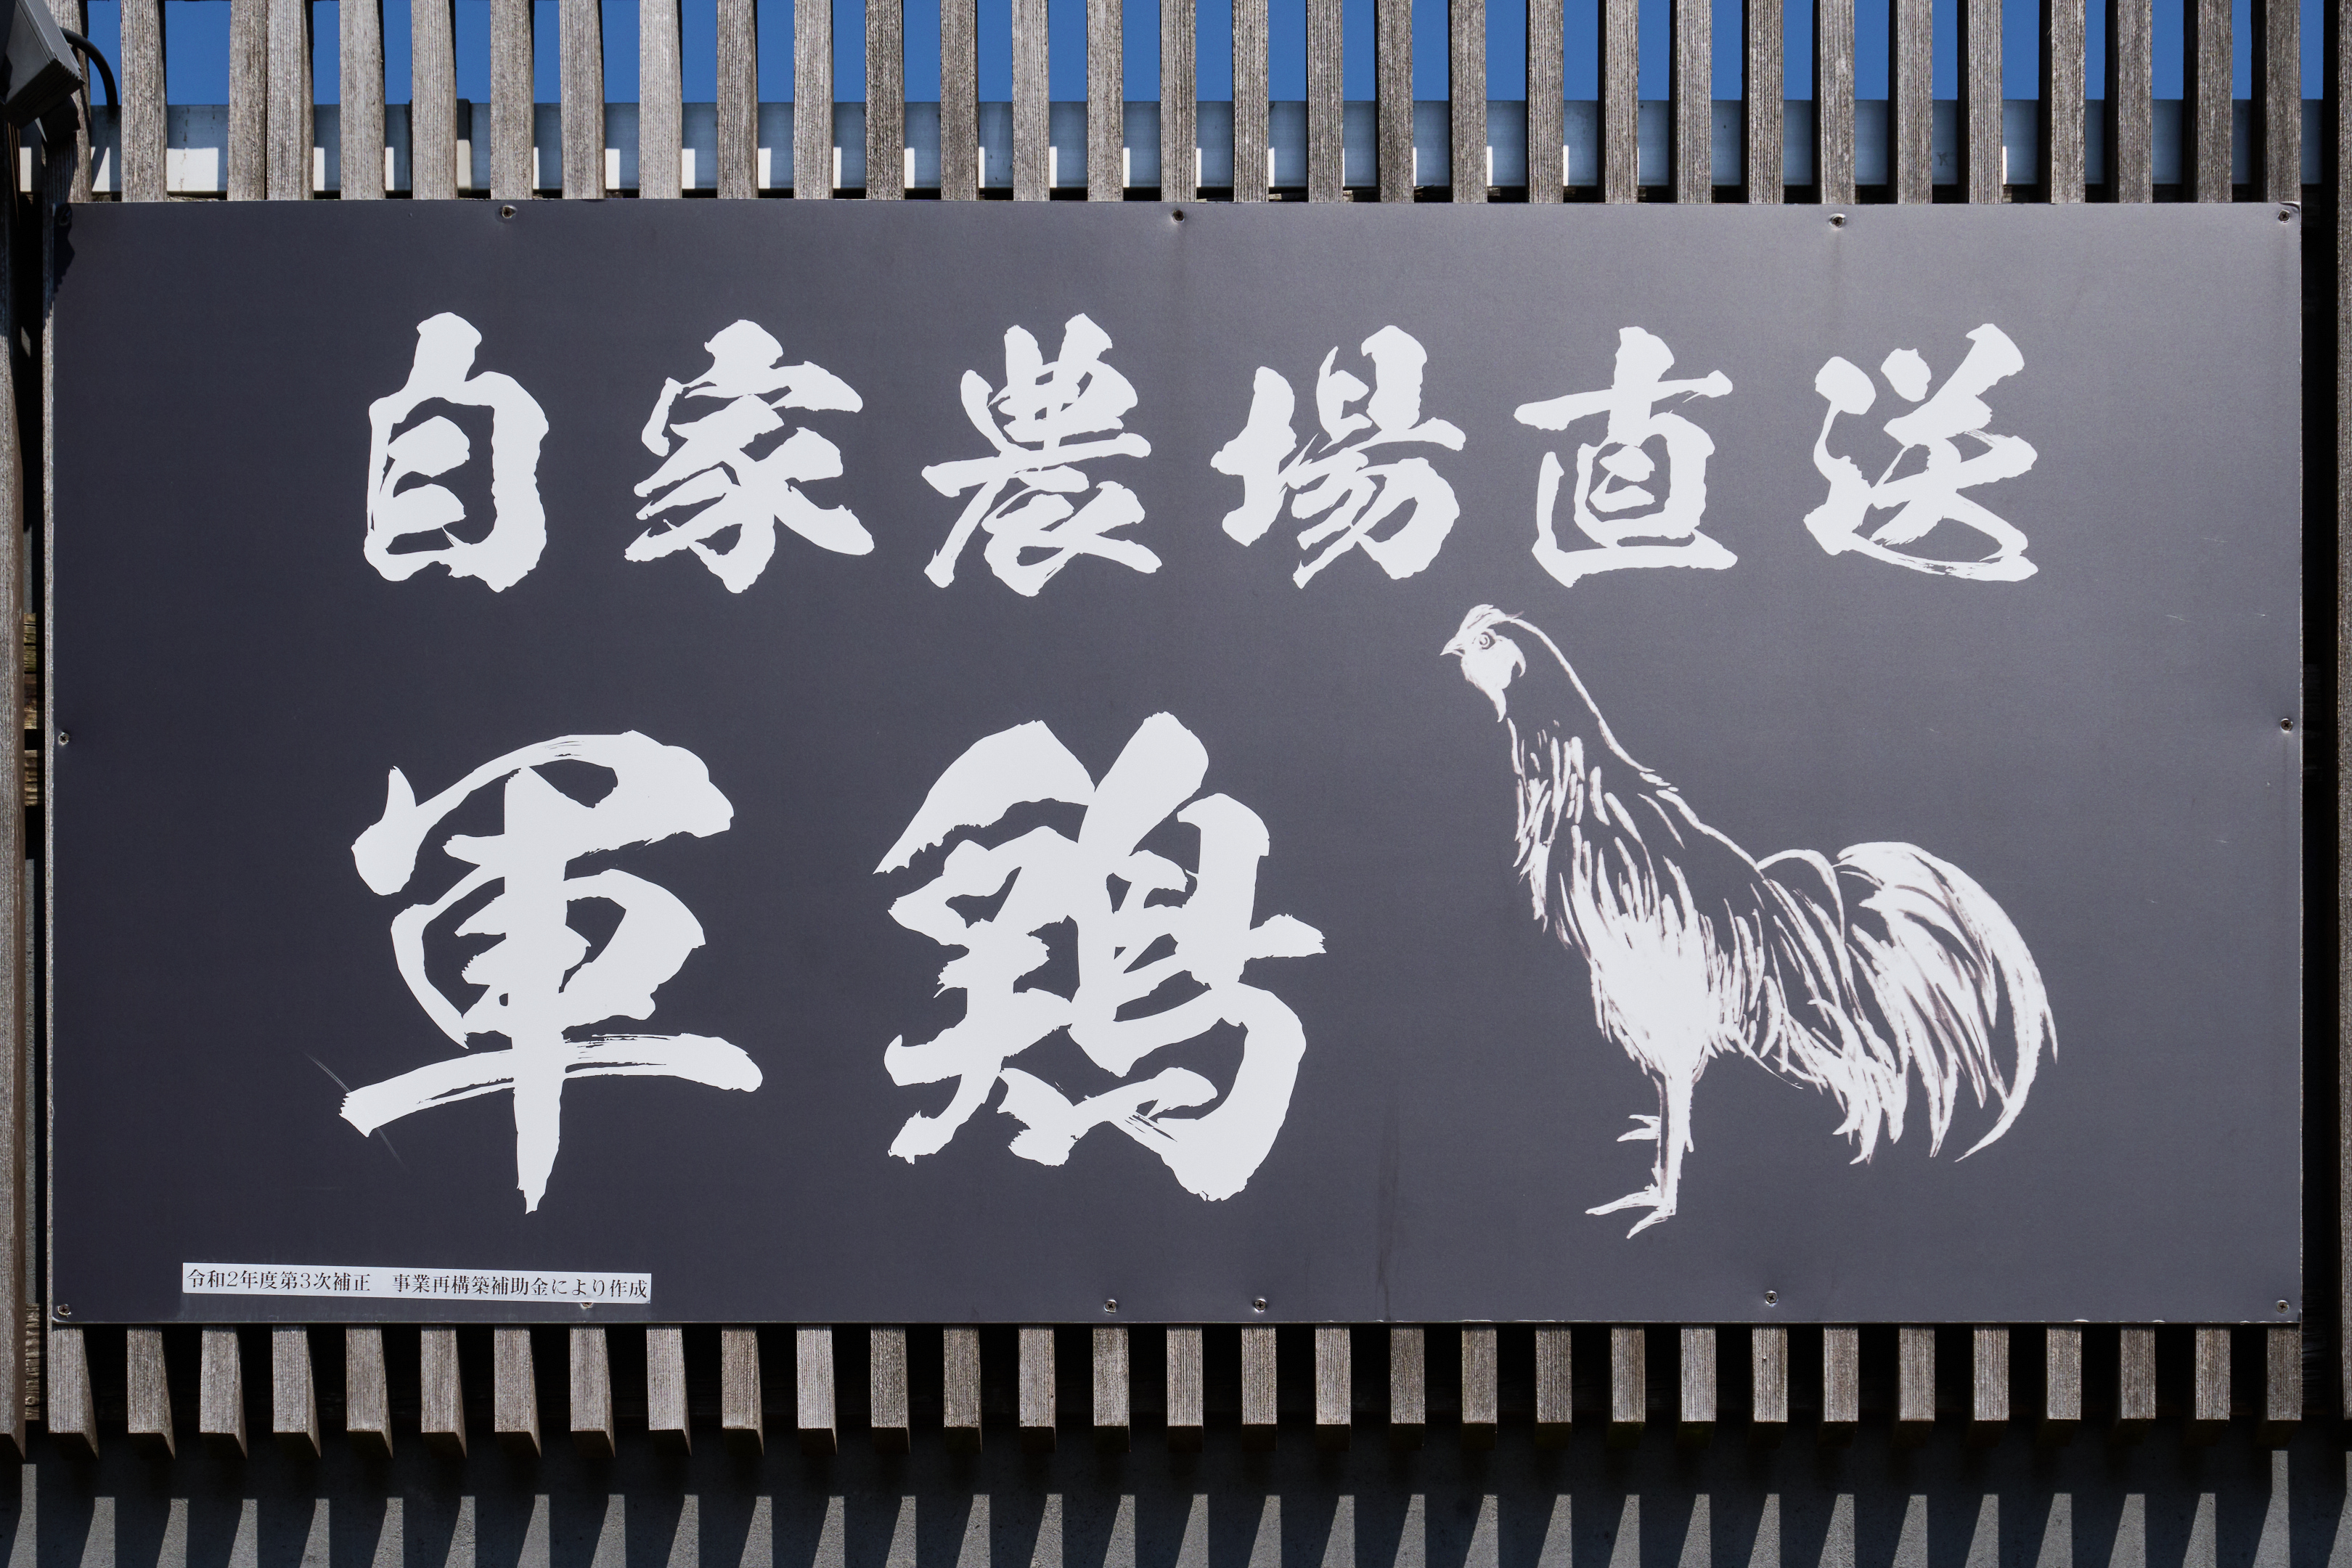 自家農場直送
軍鶏
令和2年度第3次補正　事業再構築補助金により作成